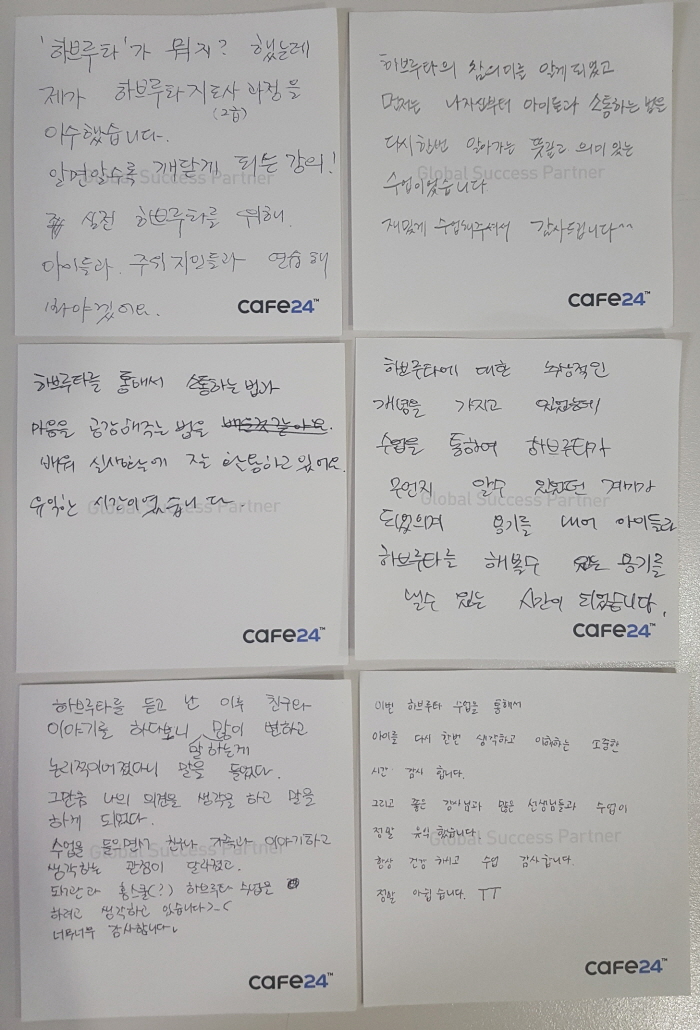 '하브루타'가 뭐지? 했는데
제가 하브루타지도사 과정을
(2급)
이수했습니다.
알면알수록 깨닫게 되는 강의!
실전 하브루타를 위해.
아이들과. 주위 지인들과 연습 해
봐야겠어요.
Global Success Partner
cafe24™
하브루타의 참의미를 알게되었고
먼저는 나자신부터 아이들과 소통하는 법을
다시한번 알아가는 뜻깊고 의미있는
수업이었습니다
재밌게 수업해주셔서 감사드립니다^^
Global Success Partner
cafe24™
하브루타를 통해서 소통하는 법과
마음을 공감해주는 법을 배운것같아요.
배워 실생활속에 잘 활용하고 있어요.
유익한 시간이였습니다.
Global Success Partner
cafe24™
하브루타에 대한 추상적인
개념을 가지고 있었는데
수업을 통하여 하브루타가
무언지 알수 있었던 계기가
되었으며 용기를 내어 아이들과
하브루타를 해볼수 있는 용기를
낼수 있는 시간이 되었습니다.
Global Success Partner
cafe24™
하브루타를 듣고 난 이후 친구와
이야기를 하다보니 많이 변하고
말하는게
논리적이어졌다니 말을 들었다.
그만큼 나의 의견을 생각을 하고 말을
하게 되었다.
수업을 들으면서 친구나 가족과 이야기하고
생각하는 관점이 달라졌고.
홈스쿨(?) 하브루타 수업은
하려고 생각하고 있습니다>_<
너무너무 감사합니다.
Global Success Partner
cafe24™
이번 하브루타 수업을 통해서
아이를 다시 한번 생각하고 이해하는 소중한
시간 감사 합니다.
그리고 좋은 강사님과 많은 선생님들과 수업이
정말 유익 했습니다.
항상 건강 하시고 수업 감사합니다.
정말 아쉽 습니다. TT
Global Success Partner
cafe24™